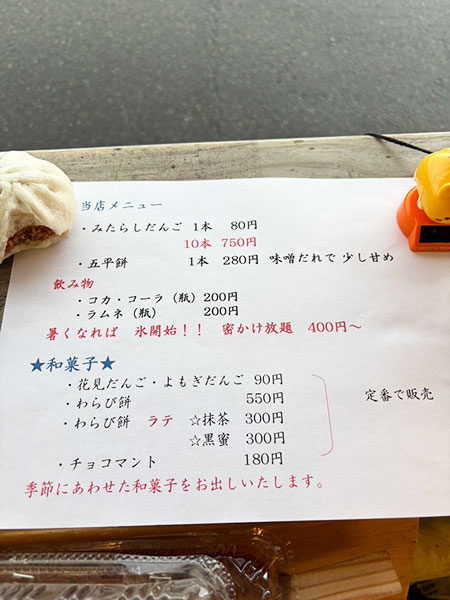 当店メニュー
・みたらしだんご 1本 80円
10本 750円
・五平餅 1本 280円 味噌だれで 少し甘め
飲み物
・コカ・コーラ（瓶）200円
・ラムネ（瓶） 200円
暑くなれば 氷開始！！ 密かけ放題 400円～
★和菓子★
・花見だんご・よもぎだんご 90円
・わらび餅 550円
定番で販売
・わらび餅 ラテ ☆抹茶 300円
☆黒蜜 300円
・チョコマント 180円
季節にあわせた和菓子をお出しいたします。